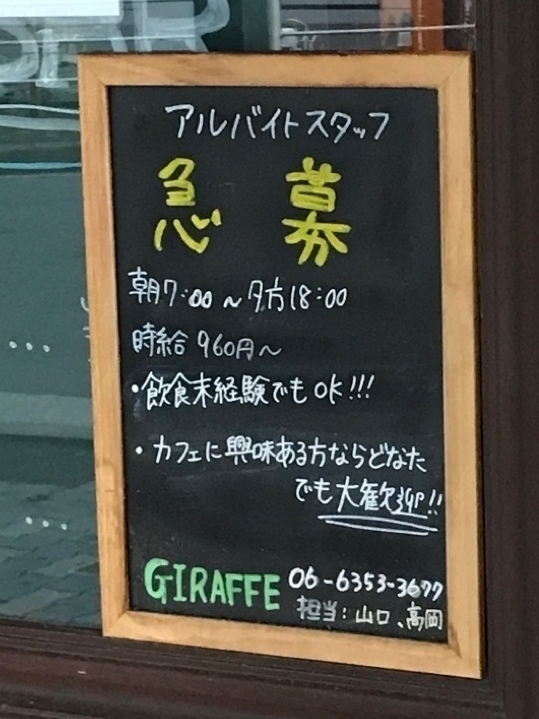 アルバイトスタッフ
急募
朝7:00～夕方18:00
時給 960円～
・飲食未経験でもOK!!!
・カフェに興味ある方ならどなた
でも大歓迎!!
GIRAFFE 06-6353-3677
担当:山口、高岡